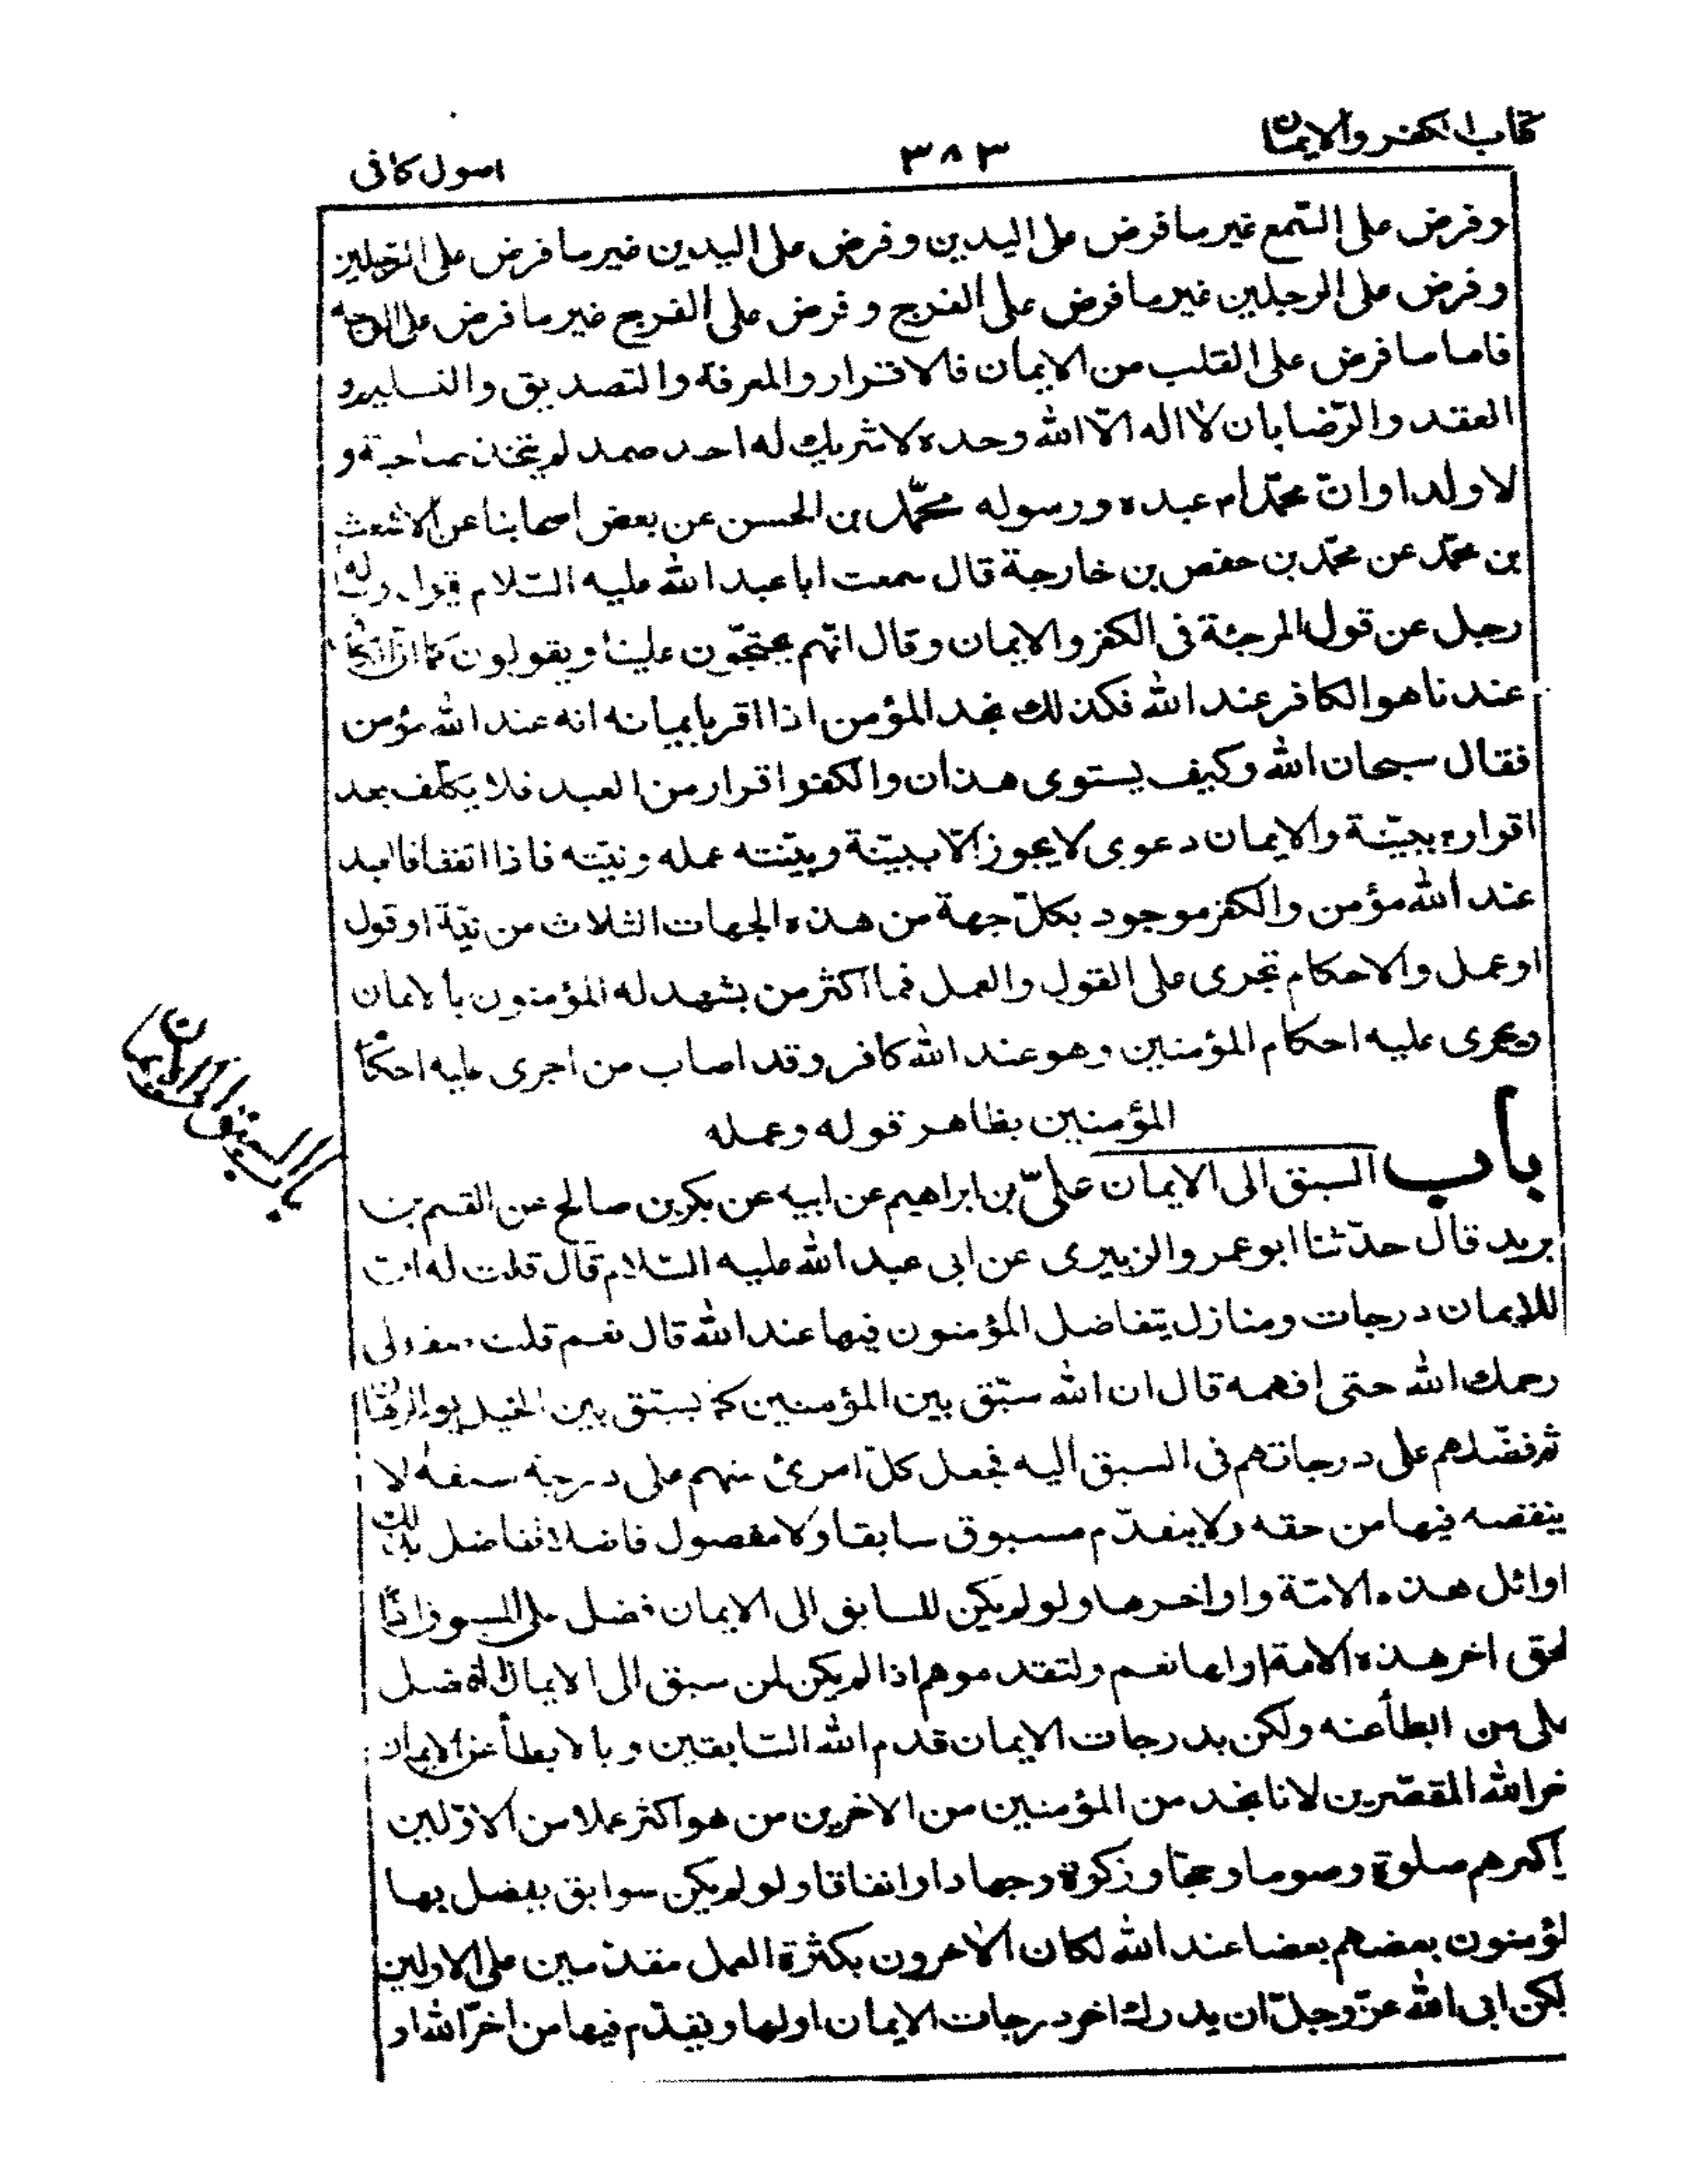 كتاب الكفر والايمان
٣٨٣
اصول كافى
وفرض على السّمع غير ما فرض على اليدين وفرض على اليدين غير ما فرض على الرجلين
وفرض على الرجلين غير ما فرض على الفرج وفرض على الفرج غير ما فرض على الوجه
فاما ما فرض على القلب من الايمان فالاقرار والمعرفة والتصديق والتسليم و
العقد والرّضا بان لا اله الّا الله وحده لا شريك له احد صمد لم يتخذ صاحبة و
لا ولدا وانّ محمّدا م عبده ورسوله محمّد بن الحسن عن بعض اصحابنا عن الاشعث
بن محمّد عن محمّد بن حفص بن خارجة قال سمعت ابا عبد الله عليه السّلام يقول
رجل عن قول المرجئة فى الكفر والايمان وقال انّهم يحتجّون علينا ويقولون كما انّ الكافر
عندنا هو الكافر عند الله فكذلك نجد المؤمن اذا اقر بايمانه انه عند الله مؤمن
فقال سبحان الله وكيف يستوى هذان والكفر اقرار من العبد فلا يكلّف بعد
اقراره ببيّنة والايمان دعوى لا يجوز الّا ببيّنة وبيّنته عمله ونيّته فاذا اتفقا فالعبد
عند الله مؤمن والكفر موجود بكلّ جهة من هذه الجهات الثلاث من نيّة او قول
او عمل والاحكام تجرى على القول والعمل فما اكثر من يشهد له المؤمنون بالايمان
ويجرى عليه احكام المؤمنين وهو عند الله كافر وقد اصاب من اجرى عليه احكام
المؤمنين بظاهر قوله وعمله
باب السبق الى الايمان
باب السبق الى الايمان علىّ بن ابراهيم عن ابيه عن بكر بن صالح عن القسم بن
بريد قال حدّثنا ابو عمرو الزبيرى عن ابى عبد الله عليه السّلام قال قلت له ان
للايمان درجات ومنازل يتفاضل المؤمنون فيها عند الله قال نعم قلت صفه لى
رحمك الله حتى افهمه قال ان الله سبّق بين المؤمنين كما يسبّق بين الخيل يوم الرهان
ثم فضّلهم على درجاتهم فى السبق اليه فجعل كلّ امرئ منهم على درجة سبقه لا
ينقصه فيها من حقه ولا يتقدّم مسبوق سابقا ولا مفضول فاضلا تفاضل بذلك
اوائل هذه الامّة واواخرها ولو لم يكن للسابق الى الايمان فضل على المسبوق اذًا
لحق اخر هذه الامة اولها نعم ولتقدموهم اذا لم يكن لمن سبق الى الايمان الفضل
على من ابطأ عنه ولكن بدرجات الايمان قدم الله السّابقين وبالابطأ عن الايمان
اخر الله المقصّرين لانا نجد من المؤمنين من الاخرين من هو اكثر عملا من الاوّلين
اكثرهم صلوة وصوما وحجّا وزكوة وجهادا وانفاقا ولو لم يكن سوابق يفضل بها
لمؤمنون بعضهم بعضا عند الله لكان الاخرون بكثرة العمل مقدّمين على الاولين
لكن ابى الله عزّ وجلّ ان يدرك اخر درجات الايمان اولها ويقدّم فيها من اخرّ الله او